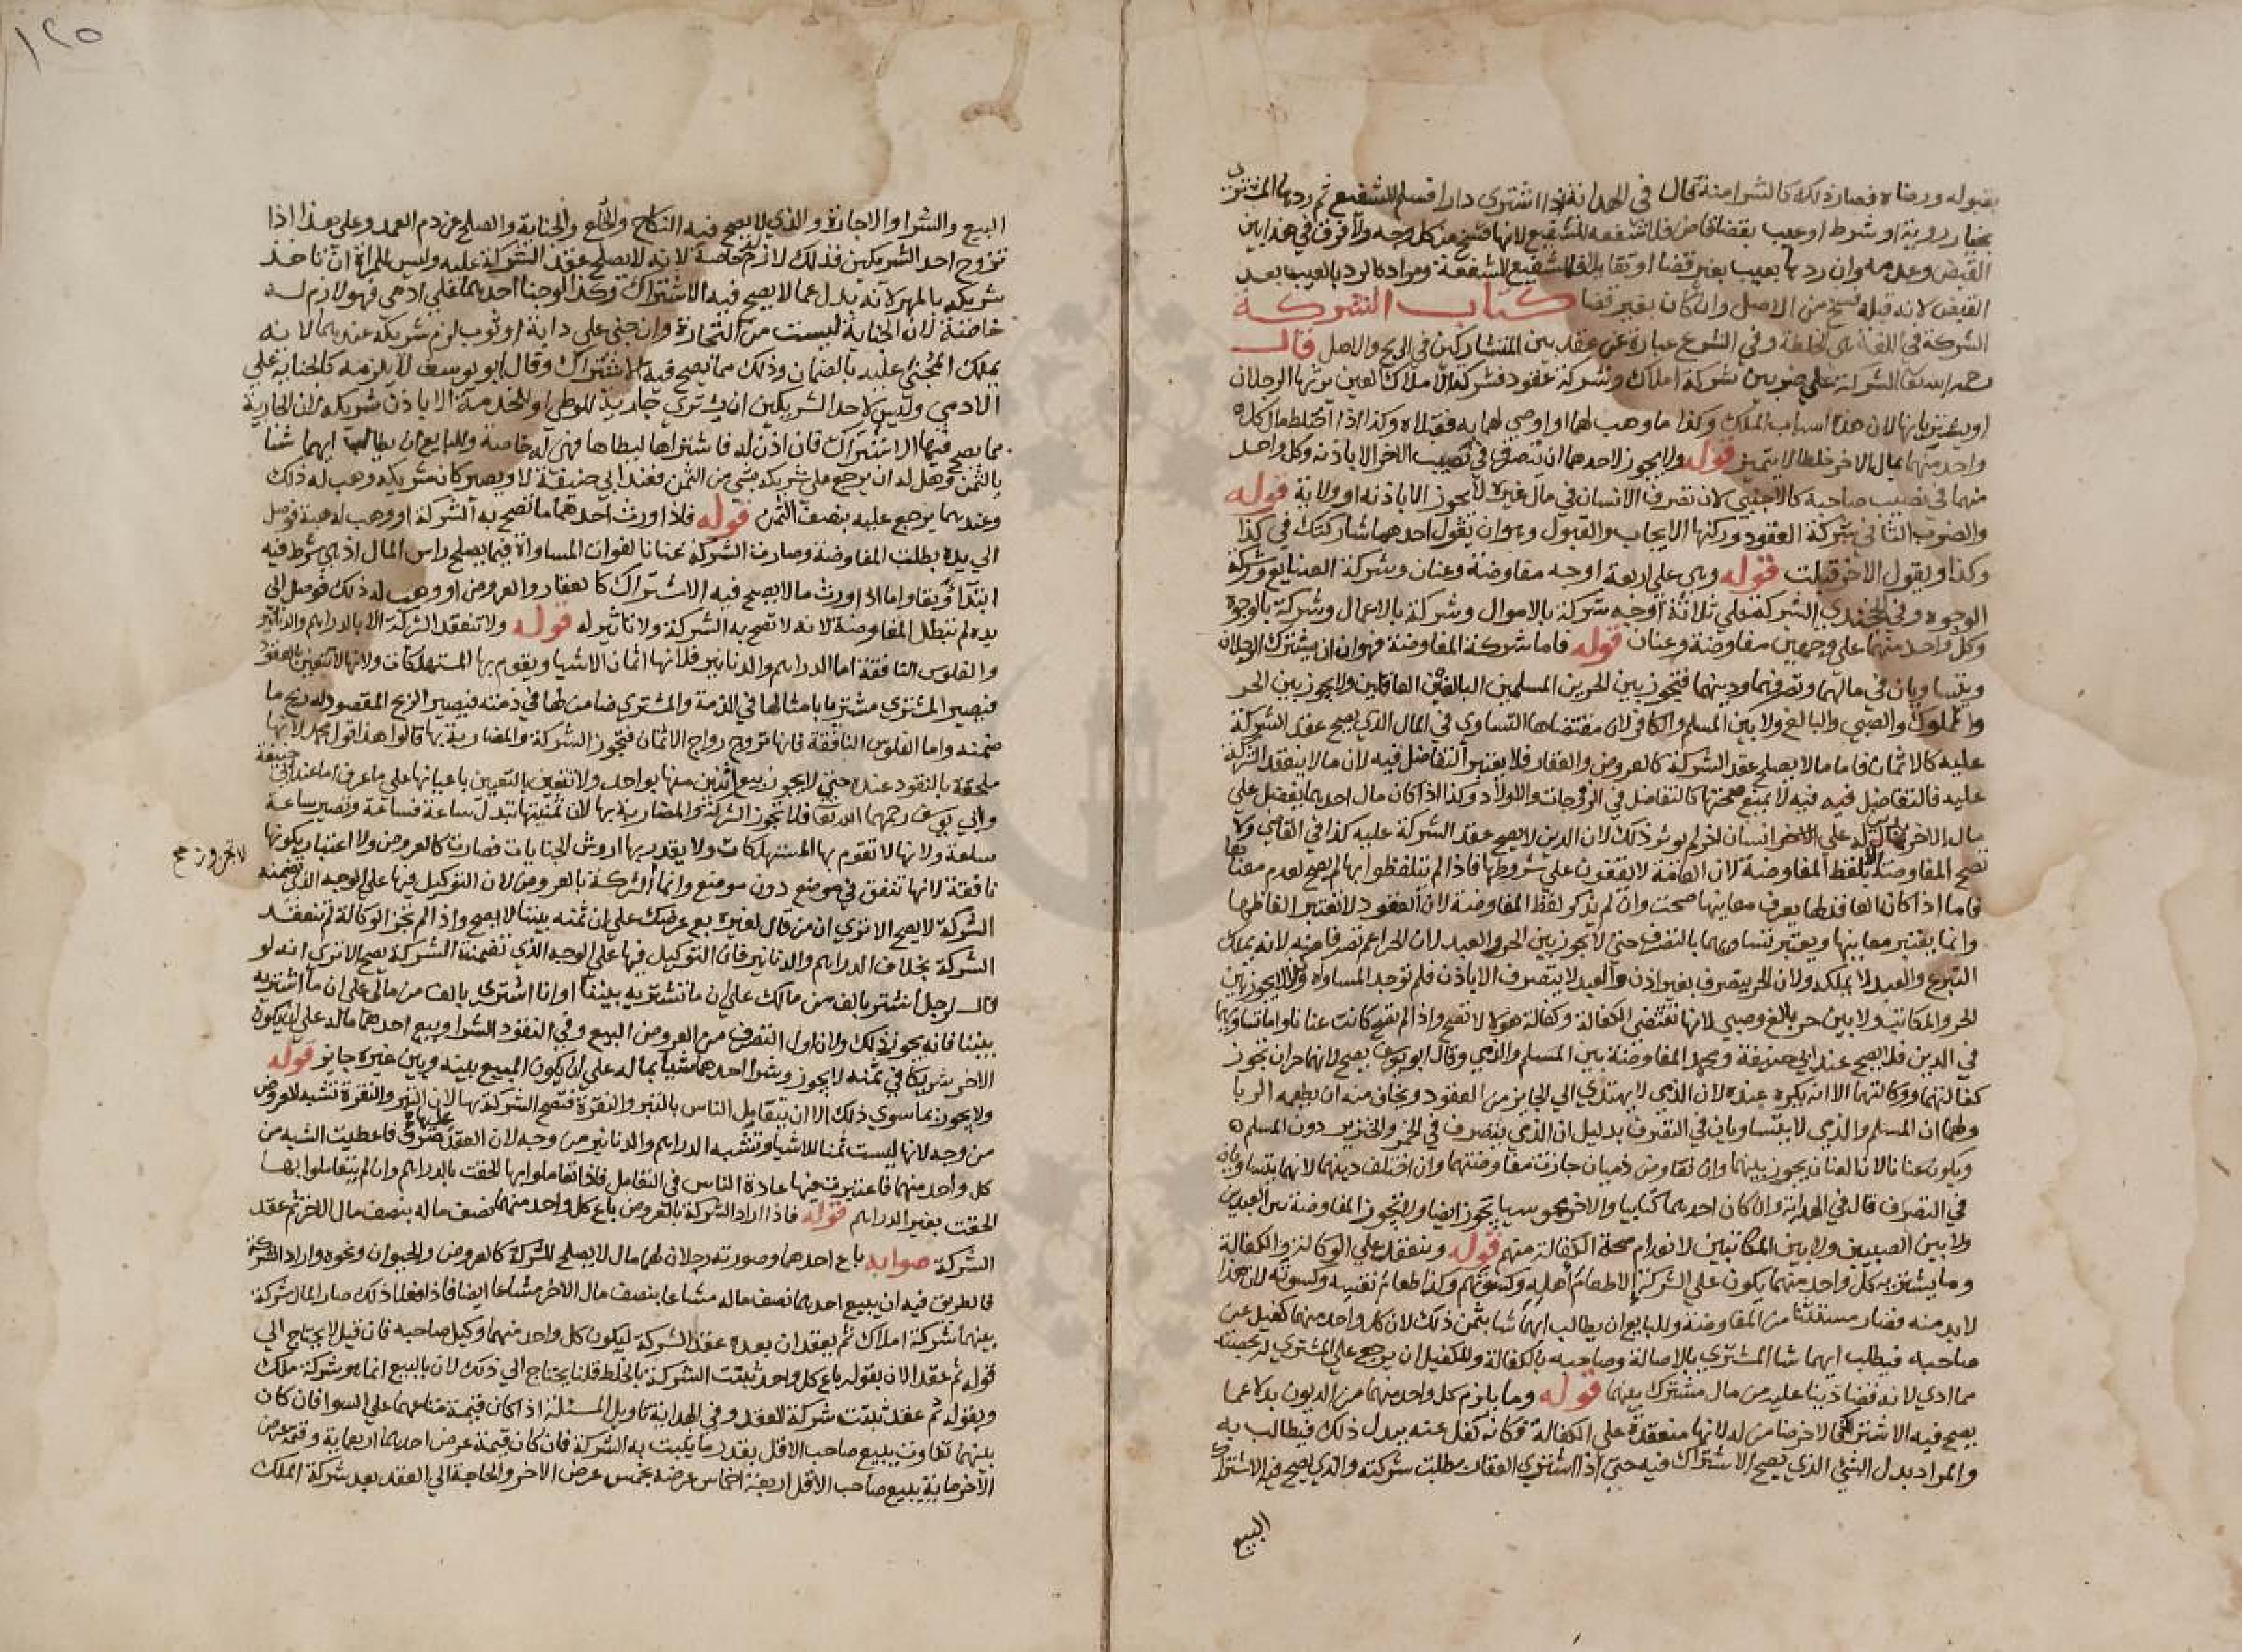 بقبوله ورضاه فصار ذلك كالشرا منه قال في الهداية اذا اشترى دارا فسلم الشفيع ثم ردها المشترى
بخيار روية او شرط او عيب بقضا قاض فلا شفعة للشفيع لانها فسخ من كل وجه ولا فرق في هذا بين
القبض وعدمه وان ردها بعيب بغير قضا او تقايلا فللشفيع الشفعة ومراده الرد بالعيب بعد
القبض لانه قبله فسخ من الاصل وان كان بغير قضا كتاب الشركة
الشركة في اللغة هي الخلطة وفي الشرع عبارة عن عقد بين المتشاركين في الربح والاصل قال
رحمه الله تعا الشركة على ضربين شركة املاك وشركة عقود فشركة الاملاك العين يرثها الرجلان
او يشتريانها لان هذا اسباب الملك وكذا ما وهب لهما او اوصي لهما به فقبلاه وكذا اذا اختلط مال كل
واحد منهما بمال الاخر خلطا لا يتميز قوله ولا يجوز لاحدهما ان يتصرف في نصيب الاخر الا باذنه وكل واحد
منهما في نصيب صاحبه كالاجنبي لان تصرف الانسان في مال غيره لا يجوز الا باذنه او ولاية قوله
والضرب الثاني شركة العقود وركنها الايجاب والقبول وهو ان يقول احدهما شاركتك في كذا
وكذا ويقول الاخر قبلت قوله وهي على اربعة اوجه مفاوضة وعنان وشركة الصنايع وشركة
الوجوه وفي الخجندي الشركة على ثلاثة اوجه شركة بالاموال وشركة بالاعمال وشركة بالوجوه
وكل واحد منهما على وجهين مفاوضة وعنان قوله فاما شركة المفاوضة فهو ان يشترك الرجلان
ويتساويان في مالهما وتصرفهما ودينهما فتجوز بين الحرين المسلمين البالغين العاقلين ولا يجوز بين الحر
والمملوك والصبي والبالغ ولا بين المسلم والكافر لان مقتضاها التساوي في المال الذي يصح عقد الشركة
عليه كالاثمان فاما ما لا يصلح عقد الشركة كالعروض والعقار فلا يعتبر التفاضل فيه لان ما لا ينعقد الشركة
عليه فالتفاضل فيه لا يمنع صحتها كالتفاضل في الزوجات والاولاد وكذا اذا كان مال احدهما يفضل على
مال الاخر بدين له على انسان اخر لم يوثر ذلك لان الدين لا يصح عقد الشركة عليه كذا في القاضي ولا
تصح المفاوضة الا بلفظ المفاوضة لان العامة لا يقفون على شروطها فاذا لم يتلفظوا بها لم يصح لعدم معناها
فاما اذا كان العاقد لها يعرف معانيها صحت وان لم يذكر لفظ المفاوضة لان العقود لا تعتبر الفاظها
وانما يعتبر معانيها ويعتبر تساويهما بالتصرف حتى لا يجوز بين الحر والعبد لان الحر اعم تصرفا منه لانه يملك
التبرع والعبد لا يملكه ولان الحر يتصرف بغير اذن والعبد لا يتصرف الا باذن فلم توجد المساواه ولا يجوز بين
الحر والمكاتب ولا بين حر بالغ وصبي لانها تقتضي الكفالة وكفالة هولا لا تصح واذا لم تصح كانت عنانا واما تساويهما
في الدين فلا يصح عند ابي حنيفة ومحمد المفاوضة بين المسلم والذمي وقال ابو يوسف يصح لانهما حران تجوز
كفالتهما ووكالتهما الا انه يكره عنده لان الذمي لا يهتدي الى الجايز من العقود ويخاف منه ان يطعمه الربا
ولهما ان المسلم والذمي لا يتساويان في التصرف بدليل ان الذمي يتصرف في الخمر والخنزير دون المسلم
ويكون عنانا لان العنان يجوز بينهما وان تفاوض ذميان جازت مفاوضتهما وان اختلف دينهما لانهما يتساويان
في التصرف قال في الهداية وان كان احدهما كتابيا والاخر مجوسيا تجوز ايضا ولا تجوز المفاوضة بين العبدين
ولا بين الصبيين ولا بين المكاتبين لانعدام صحة الكفالة منهم قوله وينعقد على الوكالة والكفالة
وما يشتريه كل واحد منهما يكون على الشركة الا طعام اهله وكسوتهم وكذا طعام نفسه وكسوته لان هذا
لا بد منه فصار مستثنا من المفاوضة وللبايع ان يطالب ايهما شا بثمن ذلك لان كل واحد منهما كفيل عن
صاحبه فيطلب ايهما شا المشتري بالاصالة وصاحبه بالكفالة وللكفيل ان يرجع على المشتري بحصته
مما ادي لانه قضا دينا عليه من مال مشترك بينهما قوله وما يلزم كل واحد منهما من الديون بدلا عما
يصح فيه الاشتراك فالاخر ضامن له لانها منعقدة على الكفالة فكانه كفل عنه ببدل ذلك فيطالب به
والمراد بدل الشئ الذي يصح الاشتراك فيه حتى اذا اشترى العقار بطلت شركته والذي يصح فيه الاشتراك
البيع
١٢٥
البيع والشرا والاجارة والذي لا يصح فيه النكاح والخلع والجناية والصلح عن دم العمد وعلى هذا اذا
تزوج احد الشريكين فذلك لازم له خاصة لانه لا يصلح عقد الشركة عليه وليس للمراة ان تاخذ
شريكه بالمهر لانه بدل عما لا يصح فيه الاشتراك وكذا لو جنا احدهما على ادمي فهو لازم له
خاصة لان الجناية ليست من التجارة وان جنى على دابة او ثوب لزم شريكه عندهما لانه
يملك المجني عليه بالضمان وذلك مما يصح فيه الاشتراك وقال ابو يوسف لا يلزمه كالجناية على
الادمي وليس لاحد الشريكين ان يشتري جارية للوطي او للخدمة الا باذن شريكه لان الجارية
مما يصح فيها الاشتراك فان اذن له فاشتراها ليطاها فهي له خاصة وللبايع ان يطالب ايهما شا
بالثمن وهل له ان يرجع على شريكه بشي من الثمن فعند ابي حنيفة لا ويصير كان شريكه وهب له ذلك
وعندهما يرجع عليه بنصف الثمن قوله فاذا ورث احدهما ما تصح به الشركة او وهب له هبة فوصل
الى يده بطلت المفاوضة وصارت الشركة عنانا لفوات المساواة فيما يصلح راس المال اذ هي شرط فيه
ابتداء وبقا واما اذا ورث ما لا يصح فيه الاشتراك كالعقار والعروض او وهب له ذلك فوصل الى
يده لم تبطل المفاوضة لانه لا تصح به الشركة ولا تاثير له قوله ولا تنعقد الشركة الا بالدراهم والدنانير
والفلوس النافقة اما الدراهم والدنانير فلانها اثمان الاشيا ويقوم بها المستهلكات ولانها لا تتعين بالعقود
فيصير المشتري مشتريا بامثالها في الذمة والمشتري ضامن لها في ذمته فيصير الربح المقصود له ربح ما
ضمنه واما الفلوس النافقة فانها تروج رواج الاثمان فتجوز الشركة والمضاربة بها قالوا هذا قول محمد لانها
ملحقة بالنقود عنده حتى لا يجوز بيع اثنين منها بواحد ولا تتعين بالتعيين باعيانها على ما عرف اما عند ابي حنيفة
وابي يوسف رحمهما الله تعا فلا تجوز الشركة والمضاربة بها لان ثمنيتها تبدل ساعة فساعة وتصير ساعة
سلعة ولانها لا تقوم بها المستهلكات ولا يقدر بها اروش الجنايات فصارت كالعروض ولا اعتبار بكونها
نافقة لانها تنفق في موضع دون موضع وانما الشركة بالعروض لان التوكيل فيها على الوجه الذي تضمنه
لا تجوز صح
الشركة لا يصح الا ترى ان من قال لغيره بع عرضك على ان ثمنه بيننا لا يصح واذا لم تجز الوكالة لم تنعقد
الشركة بخلاف الدراهم والدنانير فان التوكيل فيها على الوجه الذي تضمنته الشركة يصح الا ترى انه لو
قال لرجل اشتر بالف من مالك على ان ما تشتريه بيننا او انا اشتري بالف من مالي على ان ما اشتريه
بيننا فانه يجوز ذلك ولان اول التصرف من العروض البيع وفي النقود الشرا وبيع احدهما ماله على ان يكون
الاخر شريكا في ثمنه لا يجوز وشرا احدهما شيا بماله على ان يكون المبيع بينه وبين غيره جايز قوله
ولا يجوز بما سوى ذلك الا ان يتعامل الناس بالتبر والنقرة فتصح الشركة بها لان التبر والنقرة تشبه العروض
من وجه لانها ليست ثمنا للاشيا وتشبه الدراهم والدنانير من وجه لان العقد عليها صرف فاعطيت الشبه من
كل واحد منهما فاعتبرت فيها عادة الناس في التعامل فاذا تعاملوا بها الحقت بالدراهم وان لم يتعاملوا بها
الحقت بغير الدراهم قوله فاذا اراد الشركة بالعروض باع كل واحد منهما نصف ماله بنصف مال الاخر ثم عقد
الشركة صوابه باع احدهما وصورته رجلان لهما مال لا يصلح للشركة كالعروض والحيوان ونحوه وارادا الشركة
فالطريق فيه ان يبيع احدهما نصف ماله مشاعا بنصف مال الاخر مشاعا ايضا فاذا فعلا ذلك صار المال شركة
بينهما شركة املاك ثم يعقدان بعده عقد الشركة ليكون كل واحد منهما وكيل صاحبه فان قيل لا يحتاج الى
قوله ثم عقد لان بقوله باع كل واحد ثبتت الشركة بالخلط قلنا يحتاج الى ذلك لان بالبيع انما هو شركة ملك
وبقوله ثم عقد ثبتت شركة العقد وفي الهداية تاويل المسئلة اذا كان قيمة متاعهما على السوا فان كان
بينهما تفاوت يبيع صاحب الاقل بقدر ما يثبت به الشركة فان كان قيمة عرض احدهما اربعماية وقيمة عرض
الاخر ماية يبيع صاحب الاقل اربعة اخماس عرضه بخمس عرض الاخر والحاجة الى العقد بعد شركة الملك